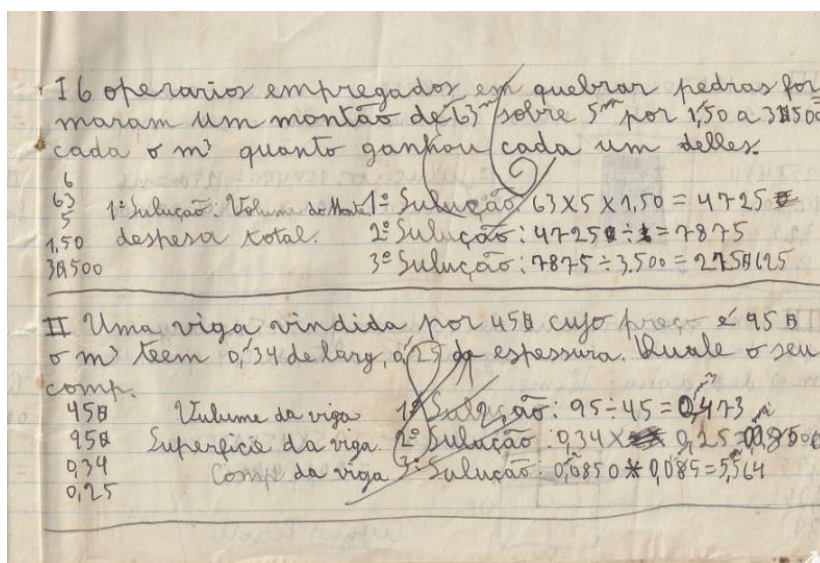 I 6 operarios empregados em quebrar pedras for
maram um montão de 63ᵐ sobre 5ᵐ por 1,50 a 3$500
cada o m³ quanto ganhou cada um delles.
6
63
5
1,50
3$500
1ª Sulução: Volume do Monte
despesa total.
1ª Sulução: 63X5X1,50 = 4725
2ª Sulução: 4725 ÷ = 7875
3ª Sulução: 7875 ÷ 3.500 = 275$625
II Uma viga vindida por 45$ cujo preço é 95$
o m³ teem 0,34 de larg, 0,25 de espessura. Quale o seu
comp.
45$
95$
0,34
0,25
Vulume da viga
Superficie da viga.
Comp da viga
1ª Sulução: 95÷45=0,473
2ª Sulução: 0,34X 0,25=0,0850
3ª Sulução: 0,0850 0,085=5,564